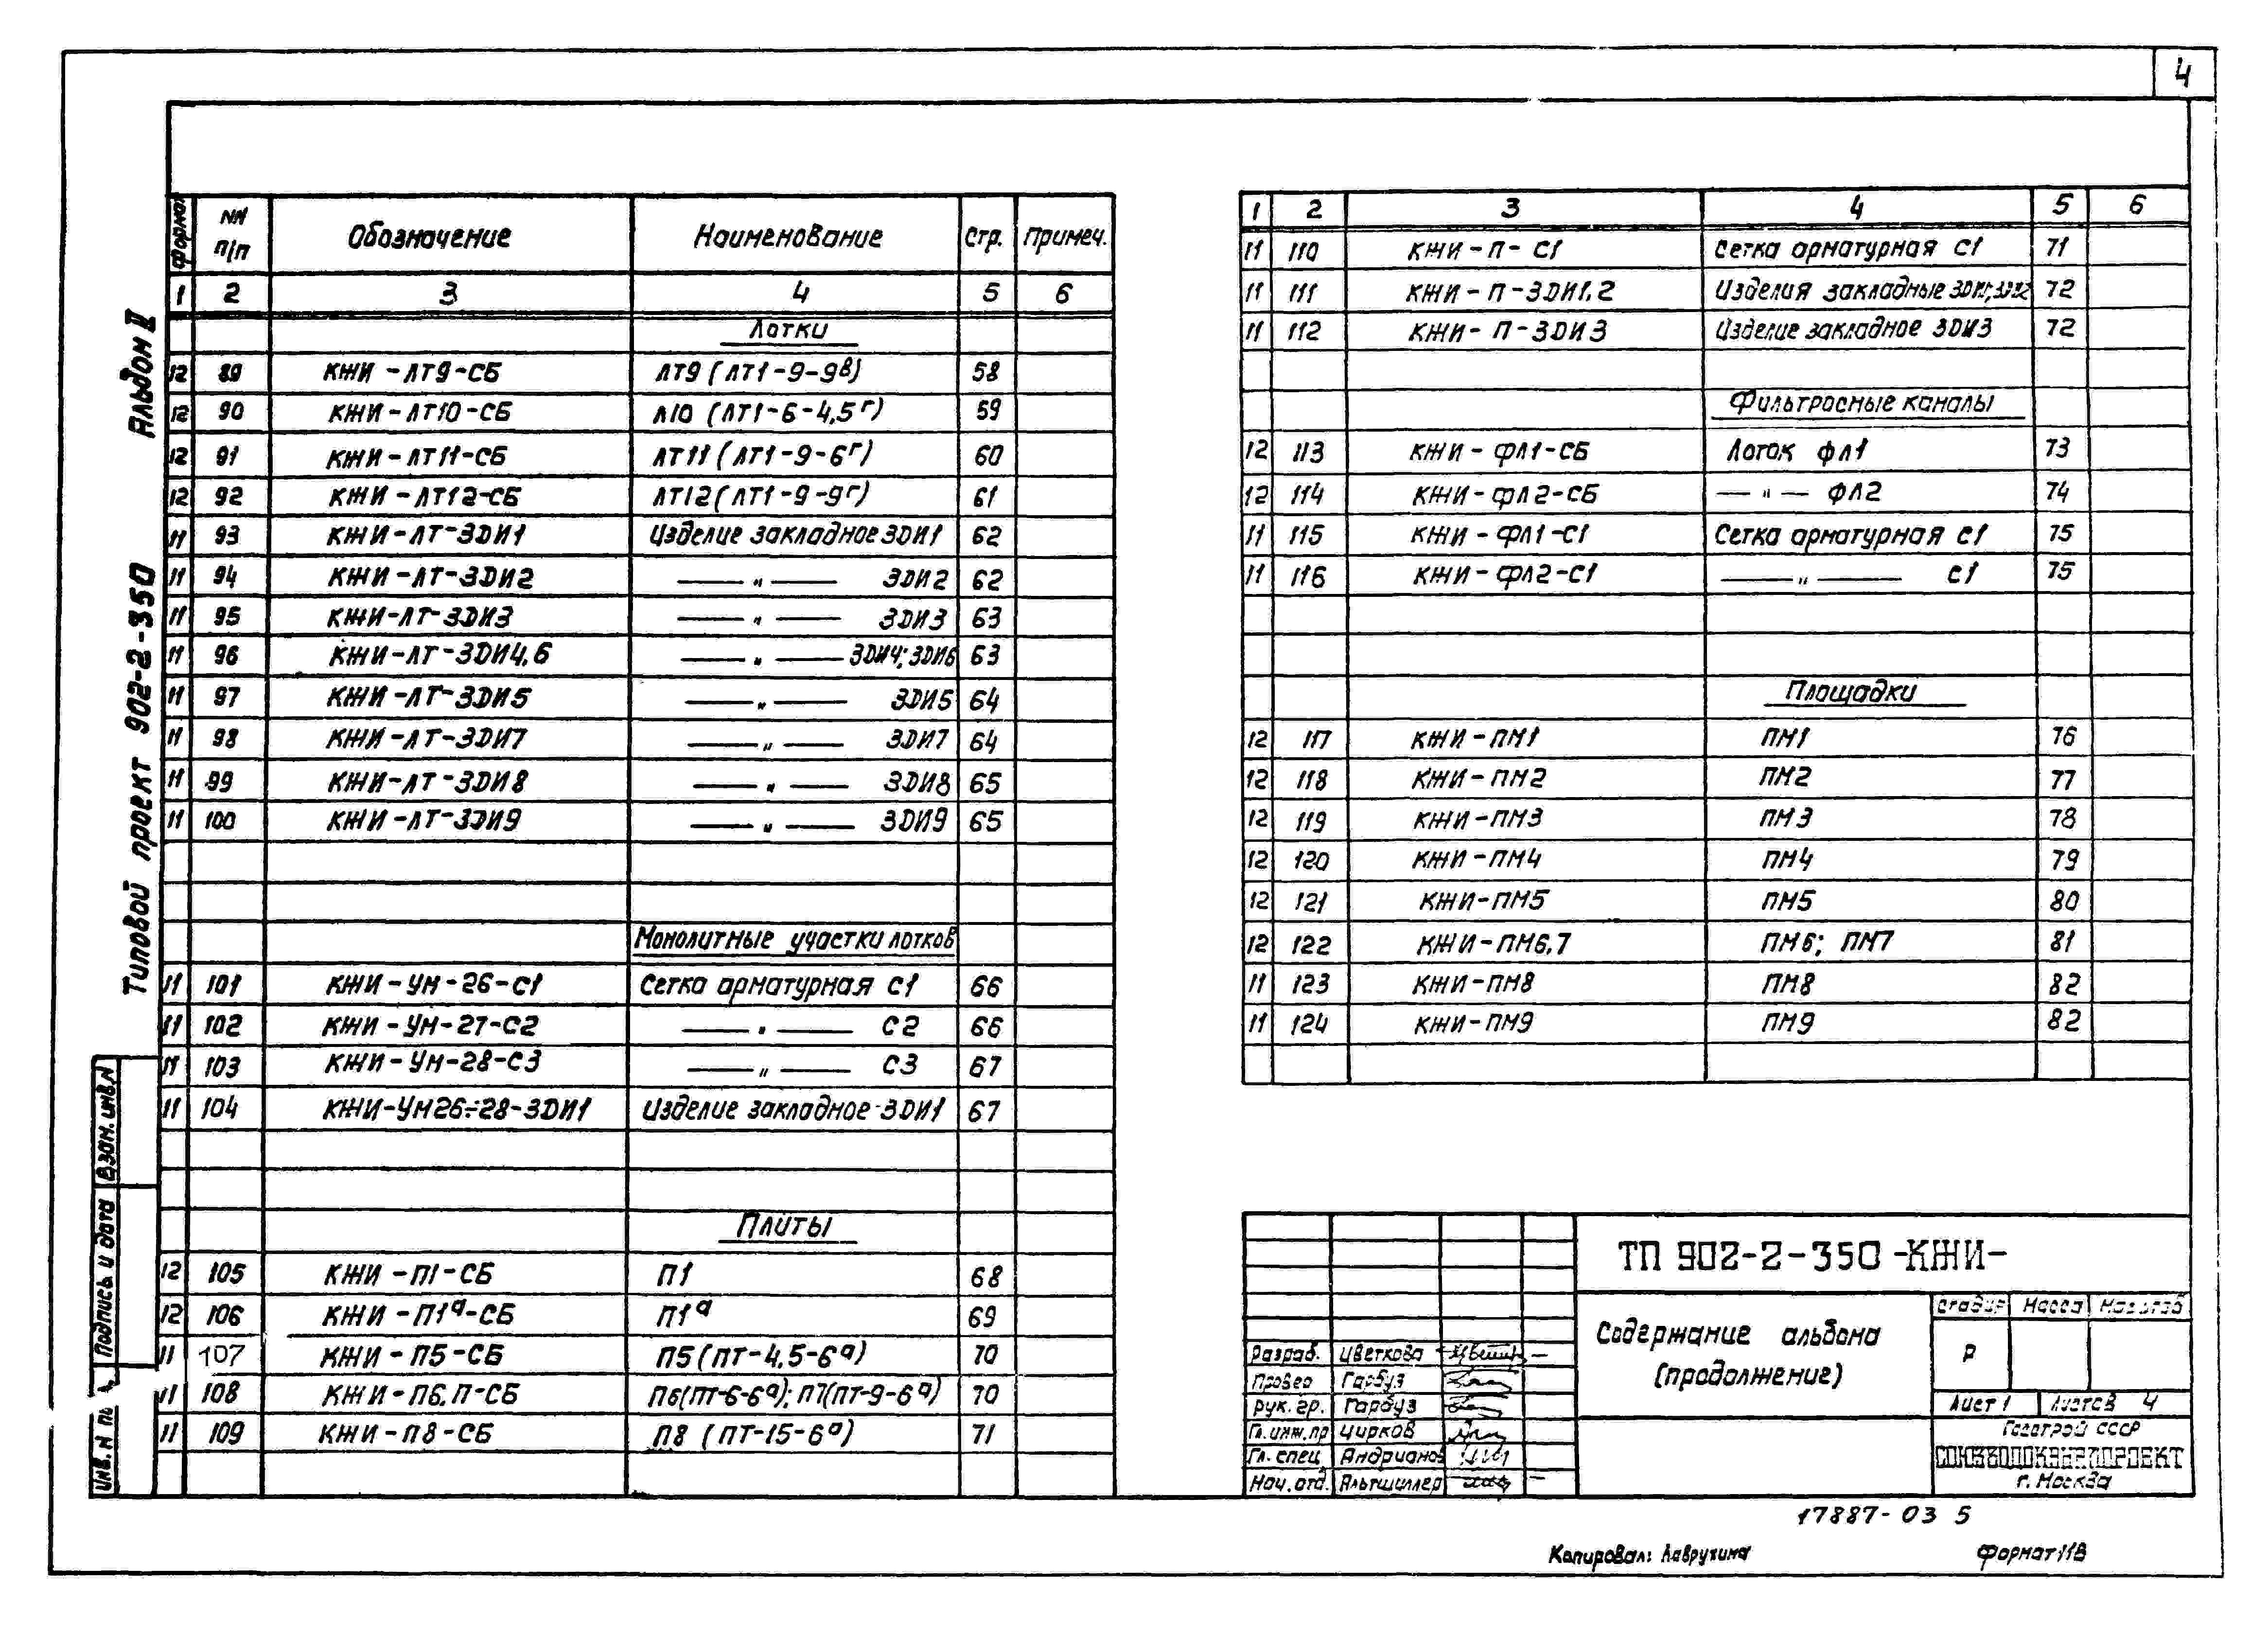 4
Альбом II
Типовой проект 902-2-350
Взам. инв.N
Подпись и дата
Инв. N
Формат | NN п/п | Обозначение | Наименование | Стр. | Примеч.
1 | 2 | 3 | 4 | 5 | 6
Лотки
12 | 89 | КЖИ-ЛТ9-СБ | ЛТ9 (ЛТ1-9-9в) | 58
12 | 90 | КЖИ-ЛТ10-СБ | Л10 (ЛТ1-6-4,5г) | 59
12 | 91 | КЖИ-ЛТ11-СБ | ЛТ11 (ЛТ1-9-6г) | 60
12 | 92 | КЖИ-ЛТ12-СБ | ЛТ12 (ЛТ1-9-9г) | 61
11 | 93 | КЖИ-ЛТ-ЗДИ1 | Изделие закладное ЗДИ1 | 62
11 | 94 | КЖИ-ЛТ-ЗДИ2 | —— " —— ЗДИ2 | 62
11 | 95 | КЖИ-ЛТ-ЗДИ3 | —— " —— ЗДИ3 | 63
11 | 96 | КЖИ-ЛТ-ЗДИ4,6 | —— " —— ЗДИ4; ЗДИ6 | 63
11 | 97 | КЖИ-ЛТ-ЗДИ5 | —— " —— ЗДИ5 | 64
11 | 98 | КЖИ-ЛТ-ЗДИ7 | —— " —— ЗДИ7 | 64
11 | 99 | КЖИ-ЛТ-ЗДИ8 | —— " —— ЗДИ8 | 65
11 | 100 | КЖИ-ЛТ-ЗДИ9 | —— " —— ЗДИ9 | 65
Монолитные участки лотков
11 | 101 | КЖИ-УМ-26-С1 | Сетка арматурная С1 | 66
11 | 102 | КЖИ-УМ-27-С2 | —— " —— С2 | 66
11 | 103 | КЖИ-УМ-28-С3 | —— " —— С3 | 67
11 | 104 | КЖИ-УМ26÷28-ЗДИ1 | Изделие закладное ЗДИ1 | 67
Плиты
12 | 105 | КЖИ-П1-СБ | П1 | 68
12 | 106 | КЖИ-П1а-СБ | П1а | 69
11 | 107 | КЖИ-П5-СБ | П5 (ПТ-4,5-6а) | 70
11 | 108 | КЖИ-П6,П-СБ | П6(ПТ-6-6а); П7(ПТ-9-6а) | 70
11 | 109 | КЖИ-П8-СБ | П8 (ПТ-15-6а) | 71
1 | 2 | 3 | 4 | 5 | 6
11 | 110 | КЖИ-П-С1 | Сетка арматурная С1 | 71
11 | 111 | КЖИ-П-ЗДИ1,2 | Изделия закладные ЗДИ1; ЗДИ2 | 72
11 | 112 | КЖИ-П-ЗДИ3 | Изделие закладное ЗДИ3 | 72
Фильтросные каналы
12 | 113 | КЖИ-ФЛ1-СБ | Лоток ФЛ1 | 73
12 | 114 | КЖИ-ФЛ2-СБ | — " — ФЛ2 | 74
11 | 115 | КЖИ-ФЛ1-С1 | Сетка арматурная С1 | 75
11 | 116 | КЖИ-ФЛ2-С1 | —— " —— С1 | 75
Площадки
12 | 117 | КЖИ-ПМ1 | ПМ1 | 76
12 | 118 | КЖИ-ПМ2 | ПМ2 | 77
12 | 119 | КЖИ-ПМ3 | ПМ3 | 78
12 | 120 | КЖИ-ПМ4 | ПМ4 | 79
12 | 121 | КЖИ-ПМ5 | ПМ5 | 80
12 | 122 | КЖИ-ПМ6,7 | ПМ6; ПМ7 | 81
11 | 123 | КЖИ-ПМ8 | ПМ8 | 82
11 | 124 | КЖИ-ПМ9 | ПМ9 | 82
ТП 902-2-350-КЖИ-
Содержание альбома
(продолжение)
Стадия | Масса | Масштаб
Р
Лист 1 | Листов 4
Госстрой СССР
СОЮЗВОДОКАНАЛПРОЕКТ
г. Москва
Разраб. Цветкова
Провер Гарбуз
Рук. гр. Гарбуз
Гл. инж. пр Чирков
Гл. спец Андрианов
Нач. отд. Альтшиллер
17887-03 5
Копировал: Лаврухина
Формат 11В